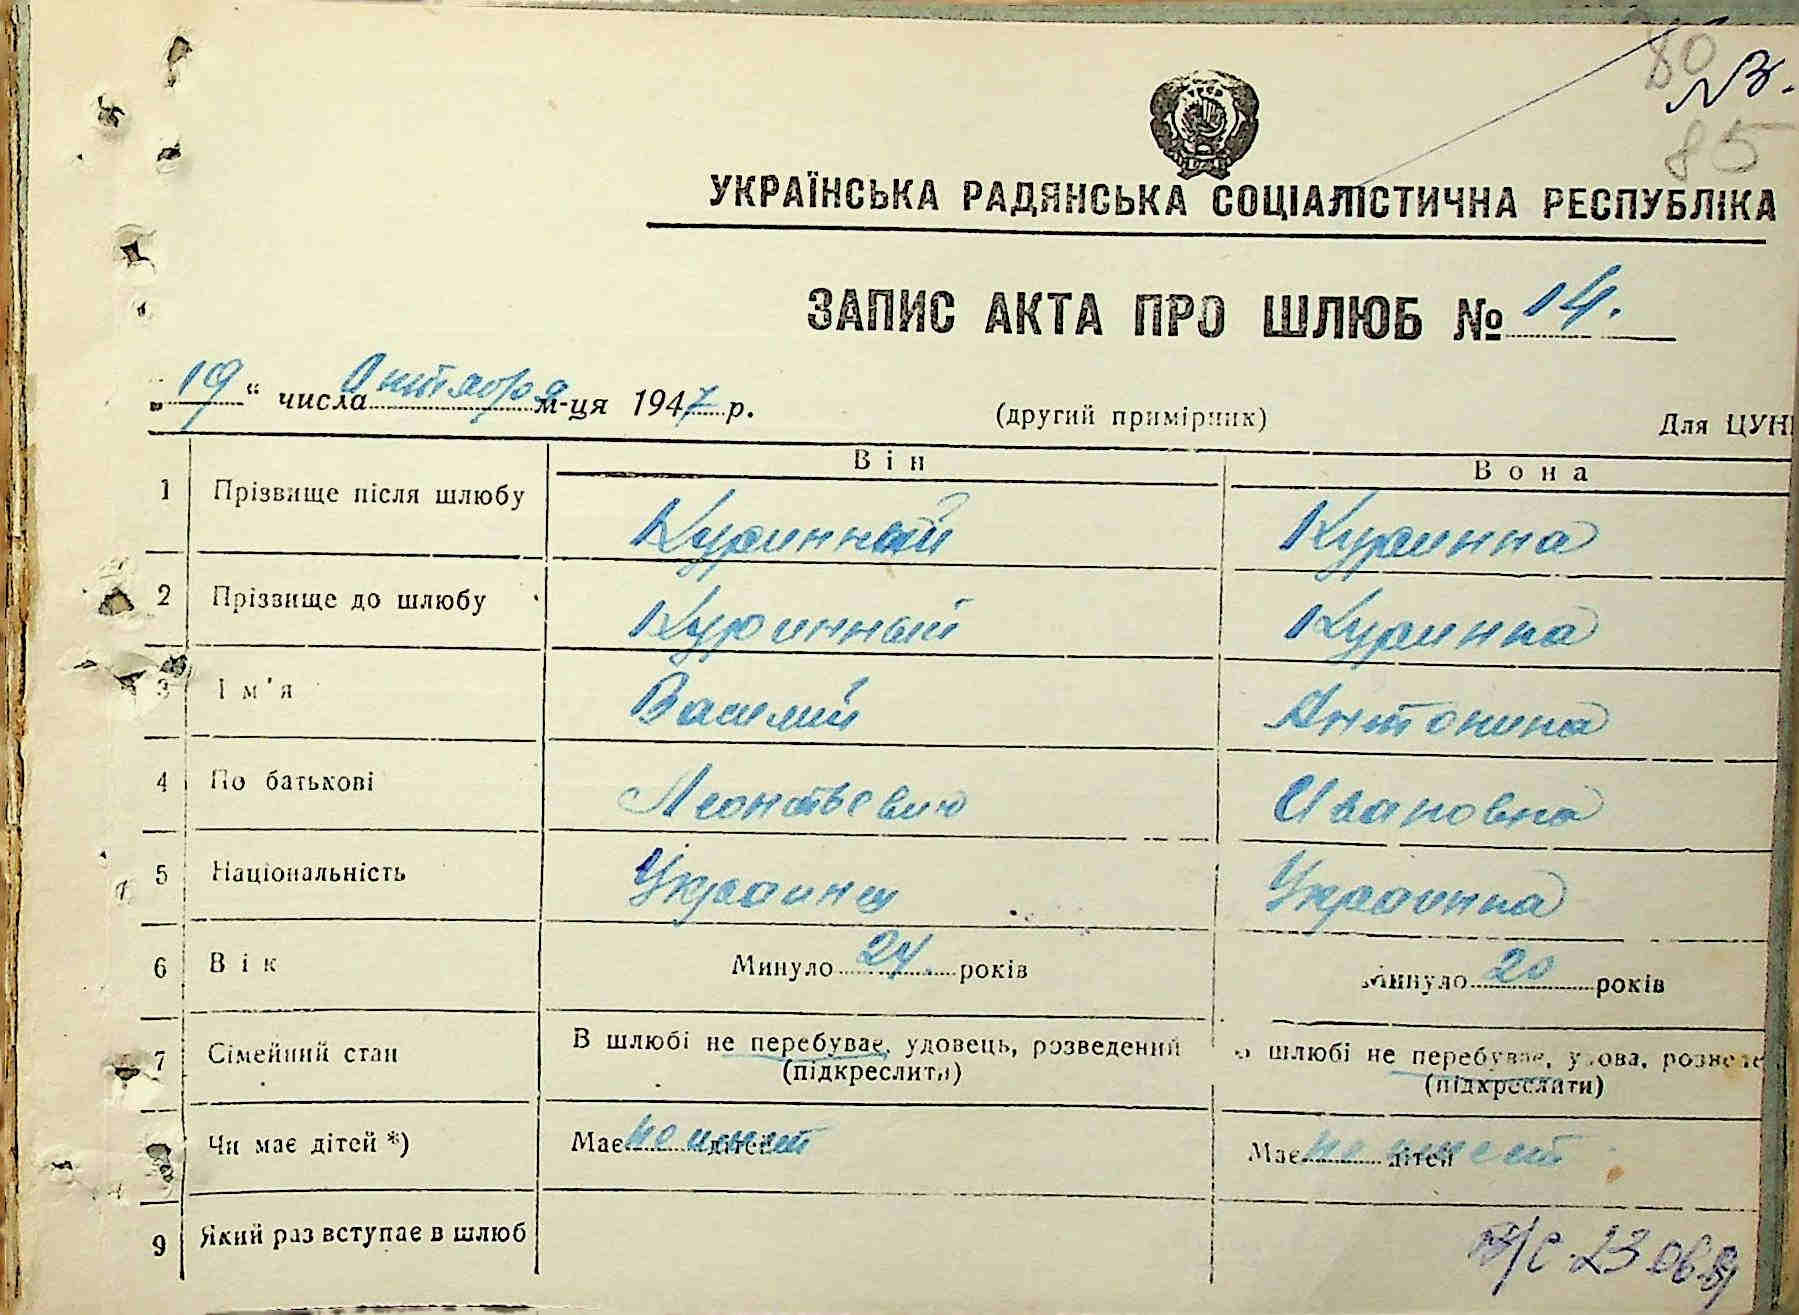 80
85
УКРАЇНСЬКА РАДЯНСЬКА СОЦІАЛІСТИЧНА РЕСПУБЛІКА
ЗАПИС АКТА ПРО ШЛЮБ № 14.
„19“ числа Октября м-ця 1947 р.
(другий примірник)
Для ЦУН
Він Вона
1 Прізвище після шлюбу Куринный Куринна
2 Прізвище до шлюбу Куринный Куринна
3 Ім'я Василий Антонина
4 По батькові Леонтьевич Ивановна
5 Національність Украинец Украинка
6 Вік Минуло 24 років Минуло 20 років
7 Сімейний стан В шлюбі не перебуває, удовець, розведений В шлюбі не перебуває, удова, розведе
(підкреслити) (підкреслити)
Чи має дітей *) Має не имеет дітей Має не имеет дітей
9 Який раз вступає в шлюб